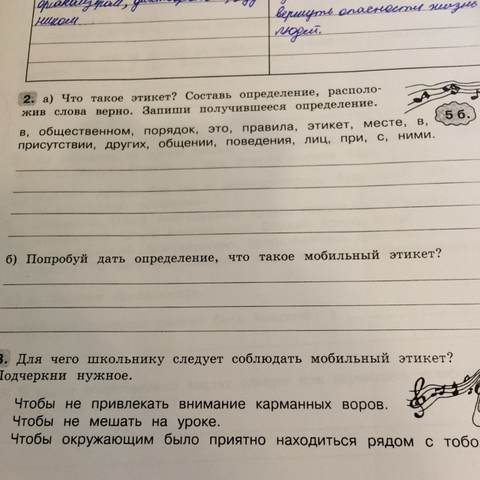 вернуть опасности жизнь
ником
людей.
2. а) Что такое этикет? Составь определение, располо-
жив слова верно. Запиши получившееся определение.
5 б.
в, общественном, порядок, это, правила, этикет, месте, в,
присутствии, других, общении, поведения, лиц, при, с, ними.
б) Попробуй дать определение, что такое мобильный этикет?
3. Для чего школьнику следует соблюдать мобильный этикет?
Подчеркни нужное.
Чтобы не привлекать внимание карманных воров.
Чтобы не мешать на уроке.
Чтобы окружающим было приятно находиться рядом с тобо